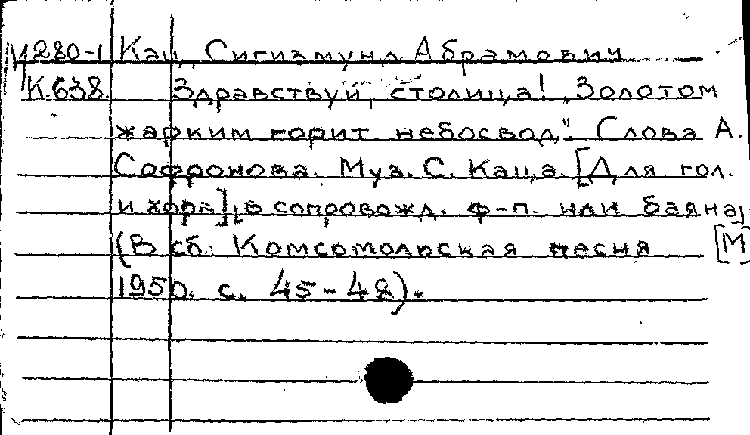 М280-1 Кац, Сигизмунд Абрамович
К638 Здравствуй, столица! "Золотом
жарким горит небосвод". Слова А.
Софронова. Муз. С. Каца. [Для гол.
и хора], в сопровожд. ф-п. или баяна,
(В сб: Комсомольская песня [М
1950. с. 45-48).